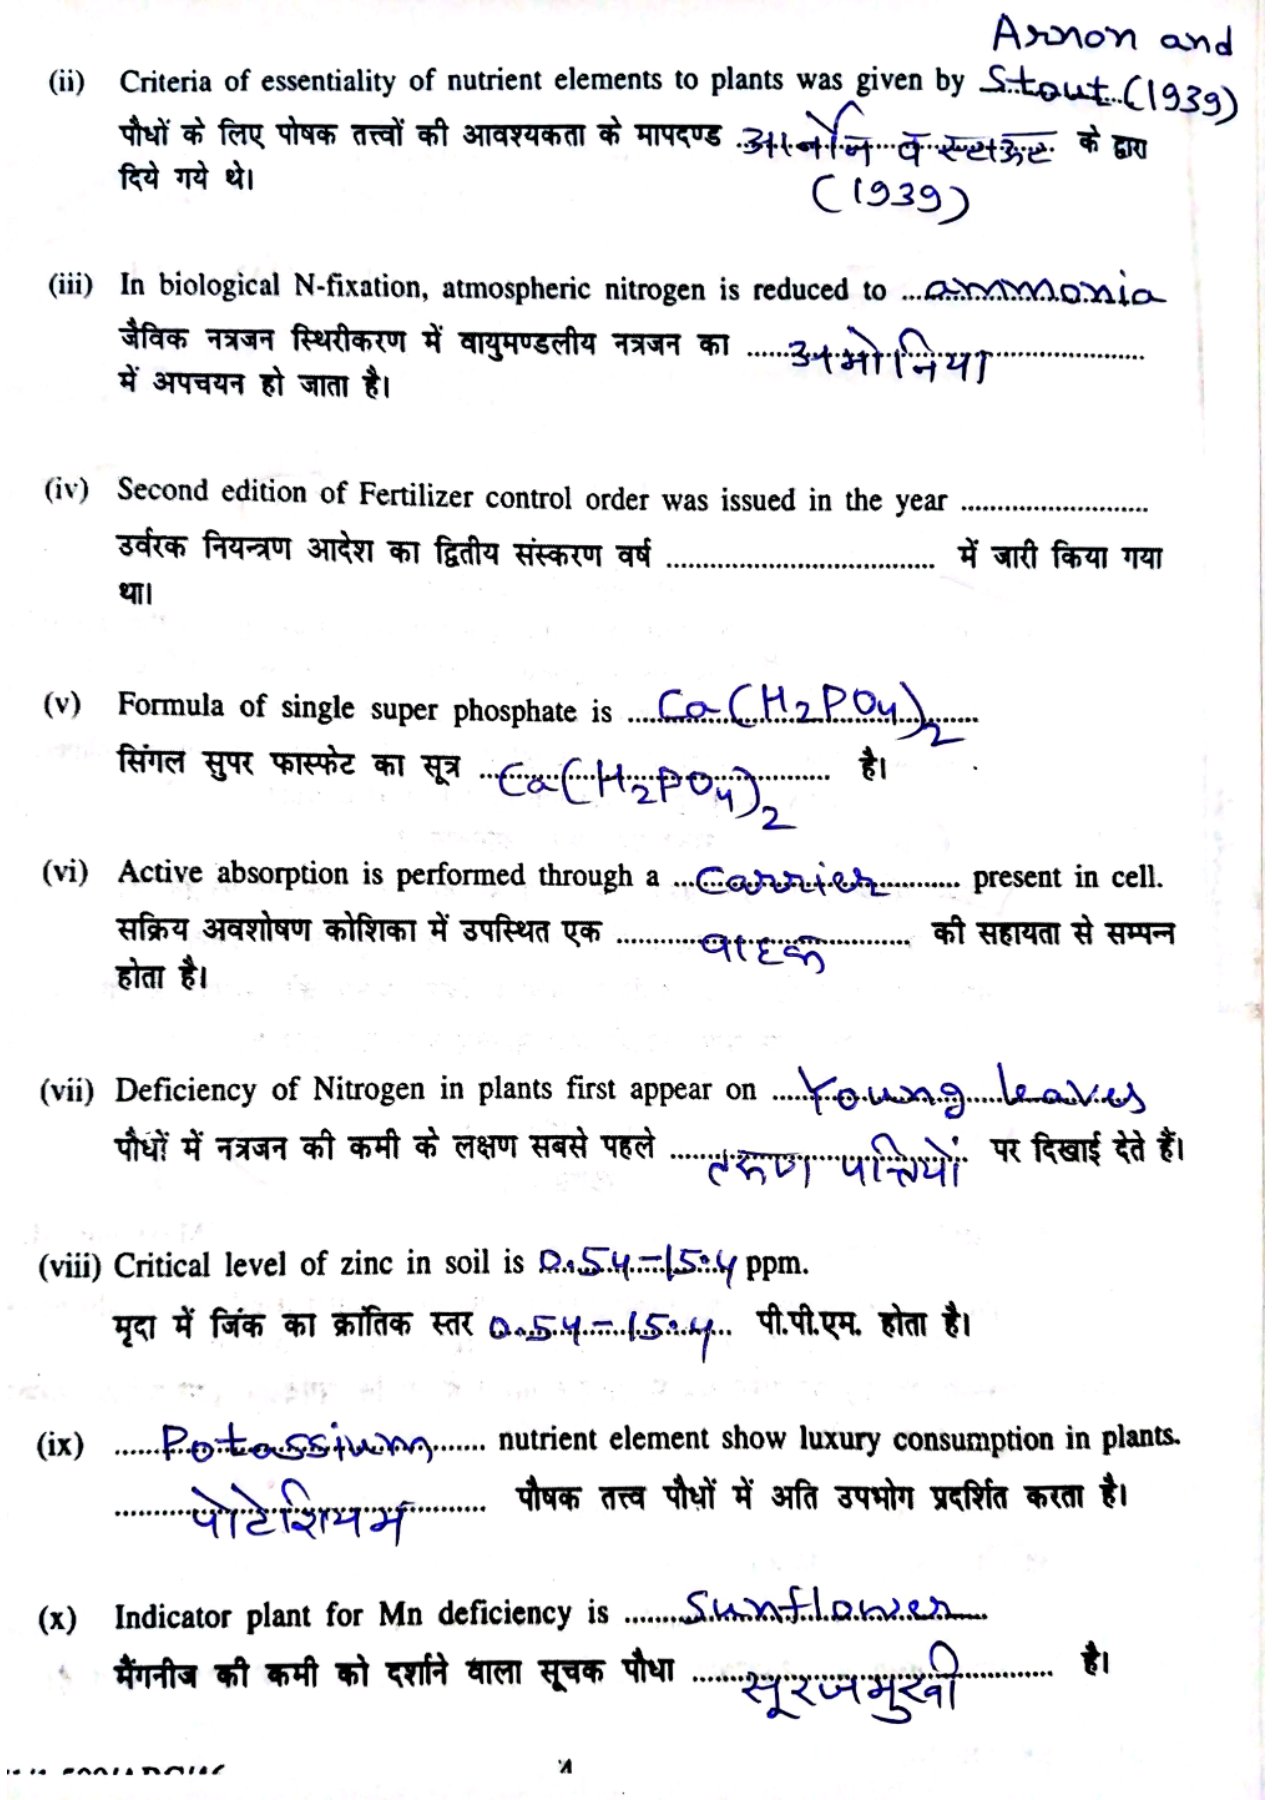 Arnon and
(ii) Criteria of essentiality of nutrient elements to plants was given by Stout (1939)
पौधों के लिए पोषक तत्त्वों की आवश्यकता के मापदण्ड आर्नोन व स्टाऊट के द्वारा
दिये गये थे। (1939)
(iii) In biological N-fixation, atmospheric nitrogen is reduced to ...ammonia
जैविक नत्रजन स्थिरीकरण में वायुमण्डलीय नत्रजन का ......अमोनिया......
में अपचयन हो जाता है।
(iv) Second edition of Fertilizer control order was issued in the year ..........................
उर्वरक नियन्त्रण आदेश का द्वितीय संस्करण वर्ष ..................................... में जारी किया गया
था।
(v) Formula of single super phosphate is ...Ca(H2PO4)2...
सिंगल सुपर फास्फेट का सूत्र ...Ca(H2PO4)2... है।
(vi) Active absorption is performed through a ...carrier... present in cell.
सक्रिय अवशोषण कोशिका में उपस्थित एक ......वाहक...... की सहायता से सम्पन्न
होता है।
(vii) Deficiency of Nitrogen in plants first appear on ...Young leaves
पौधों में नत्रजन की कमी के लक्षण सबसे पहले ...तरुण पत्तियों... पर दिखाई देते हैं।
(viii) Critical level of zinc in soil is 0.54-15.4 ppm.
मृदा में जिंक का क्रांतिक स्तर 0.54-15.4... पी.पी.एम. होता है।
(ix) ......Potassium...... nutrient element show luxury consumption in plants.
......पोटेशियम...... पौषक तत्त्व पौधों में अति उपभोग प्रदर्शित करता है।
(x) Indicator plant for Mn deficiency is ......Sunflower...
मैंगनीज की कमी को दर्शाने वाला सूचक पौधा ......सूरजमुखी...... है।
4